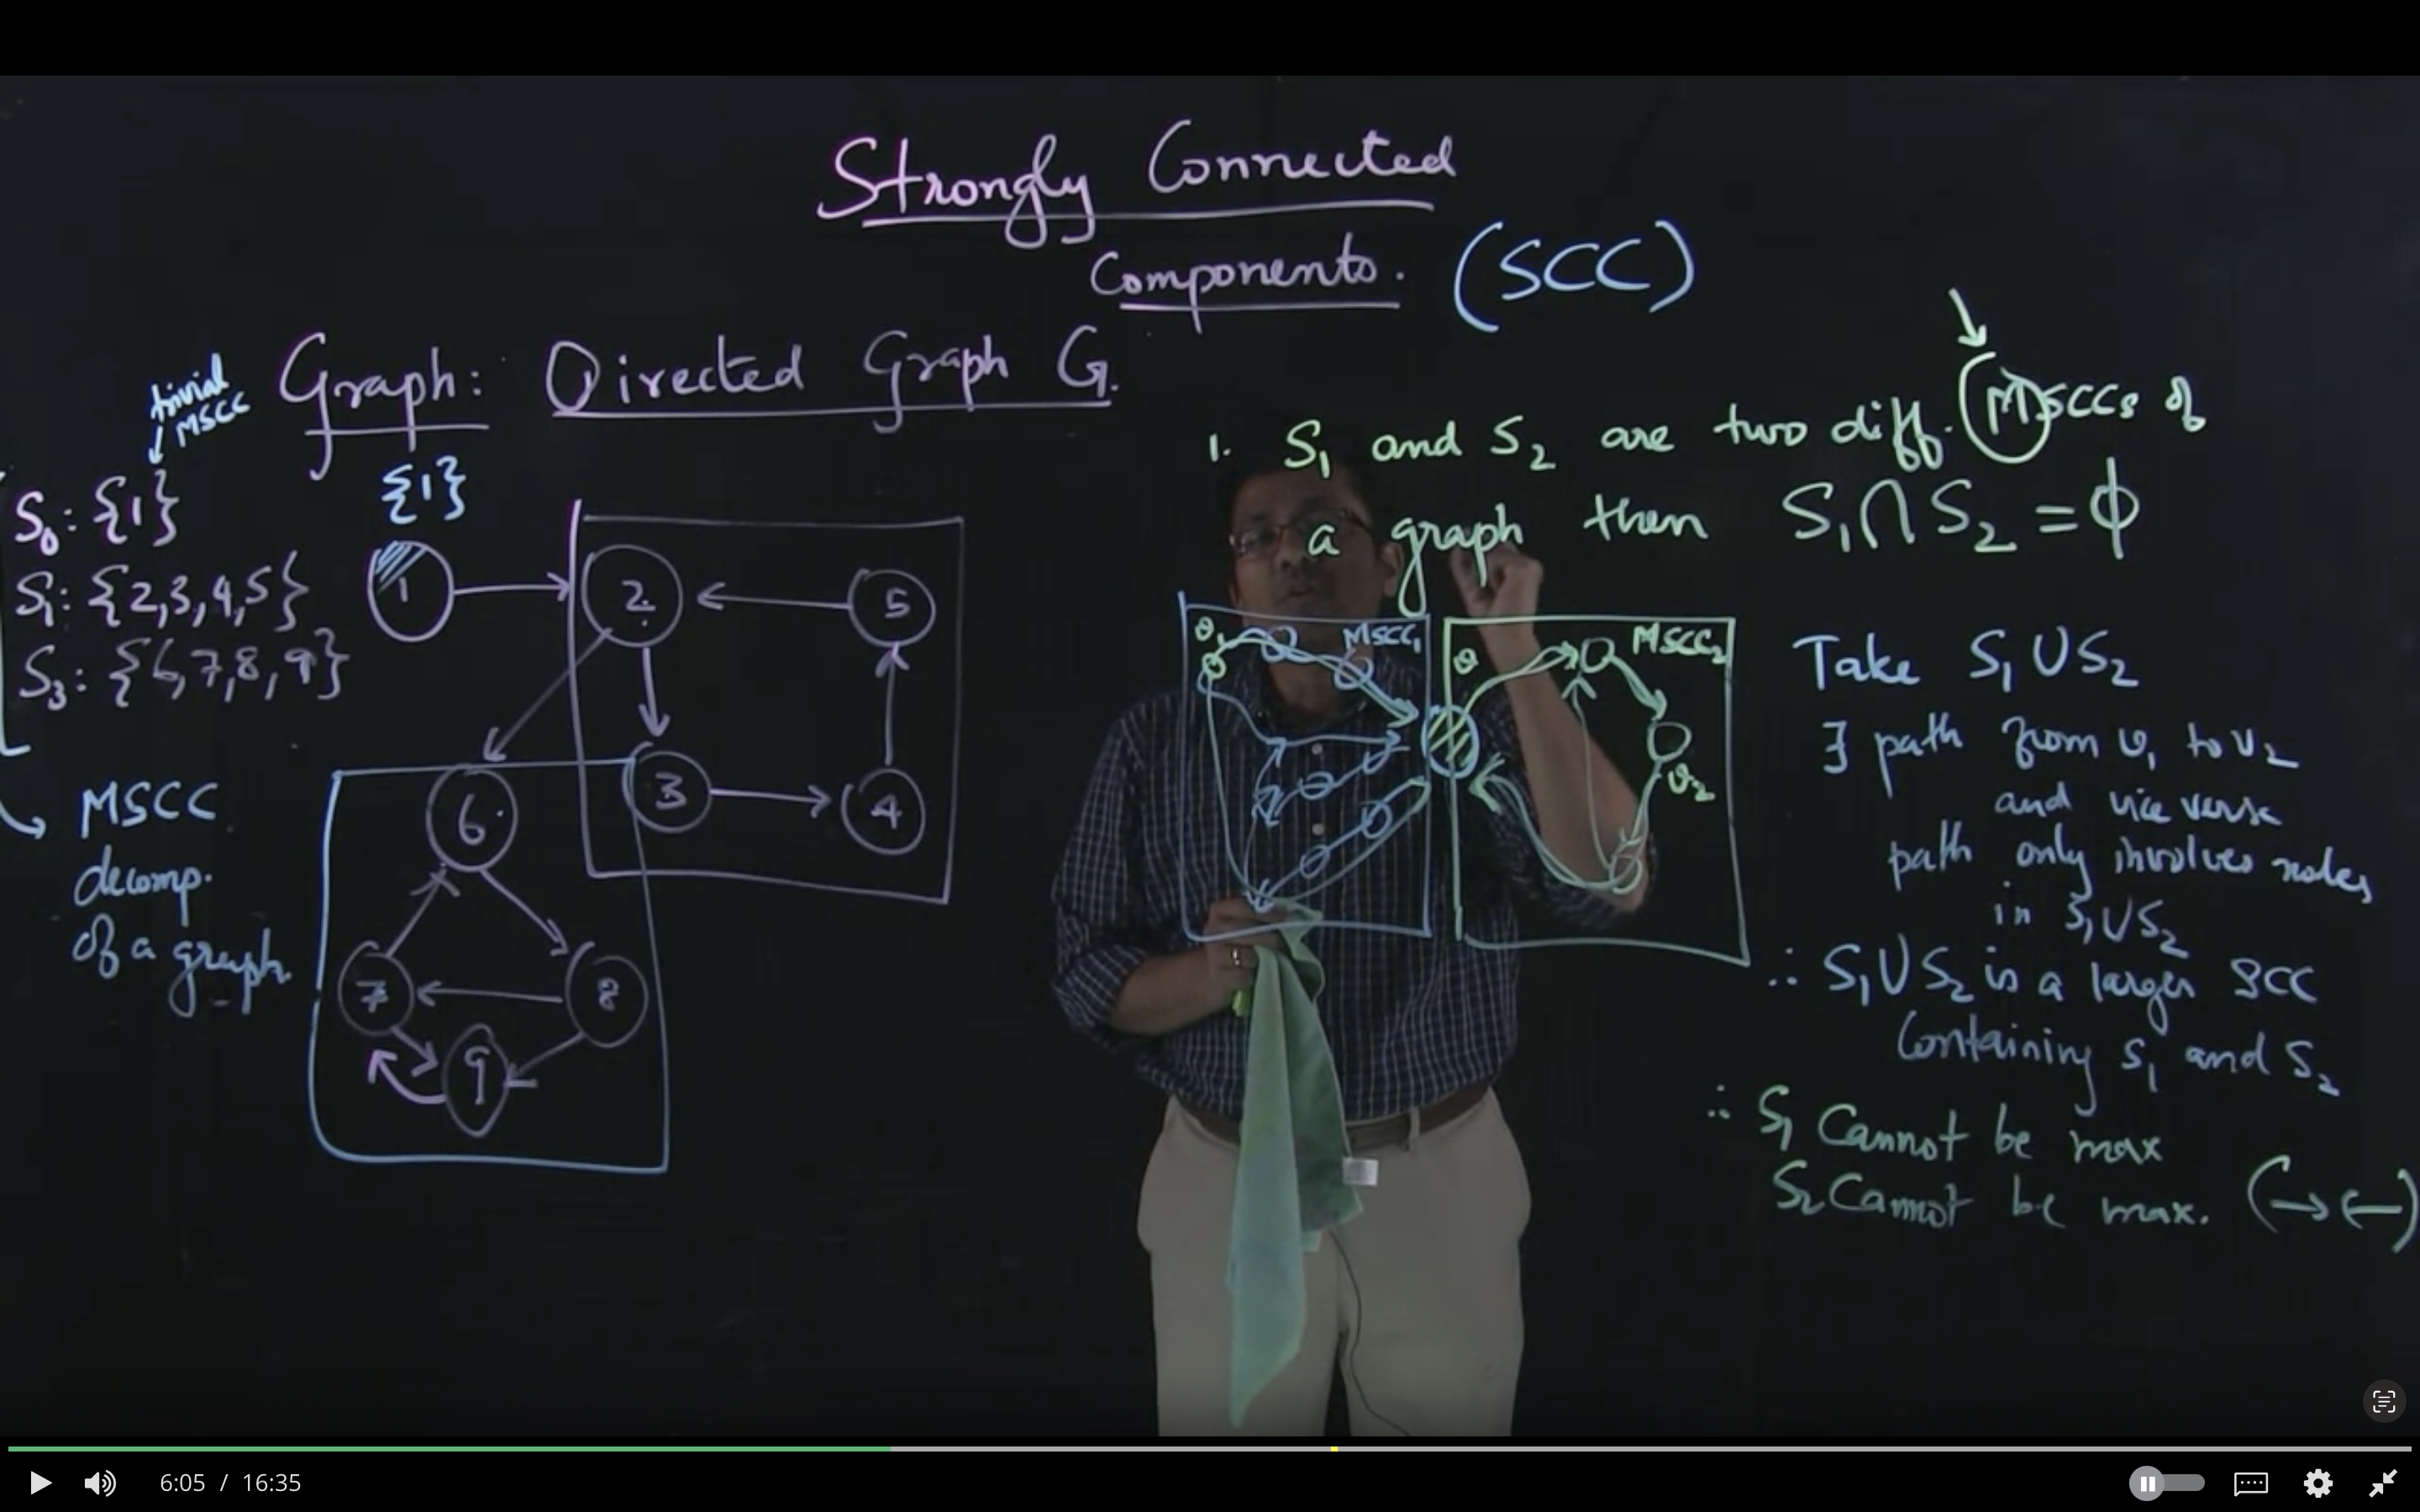 Strongly Connected
Components. (SCC)
Graph: Directed Graph G.
trivial
MSCC
{1}
S0: {1}
S1: {2,3,4,5}
S3: {6,7,8,9}
MSCC
decomp.
of a graph.
1
2
5
3
4
6
7
8
9
1. S1 and S2 are two diff. MSCCs of
a graph then S1 ∩ S2 = ϕ
v1
MSCC1
v
MSCC2
v2
Take S1 ∪ S2
∃ path from v1 to v2
and vice versa
path only involves nodes
in S1 ∪ S2
∴ S1 ∪ S2 is a larger SCC
Containing S1 and S2
∴ S1 Cannot be max
S2 Cannot be max. (→←)
6:05 / 16:35